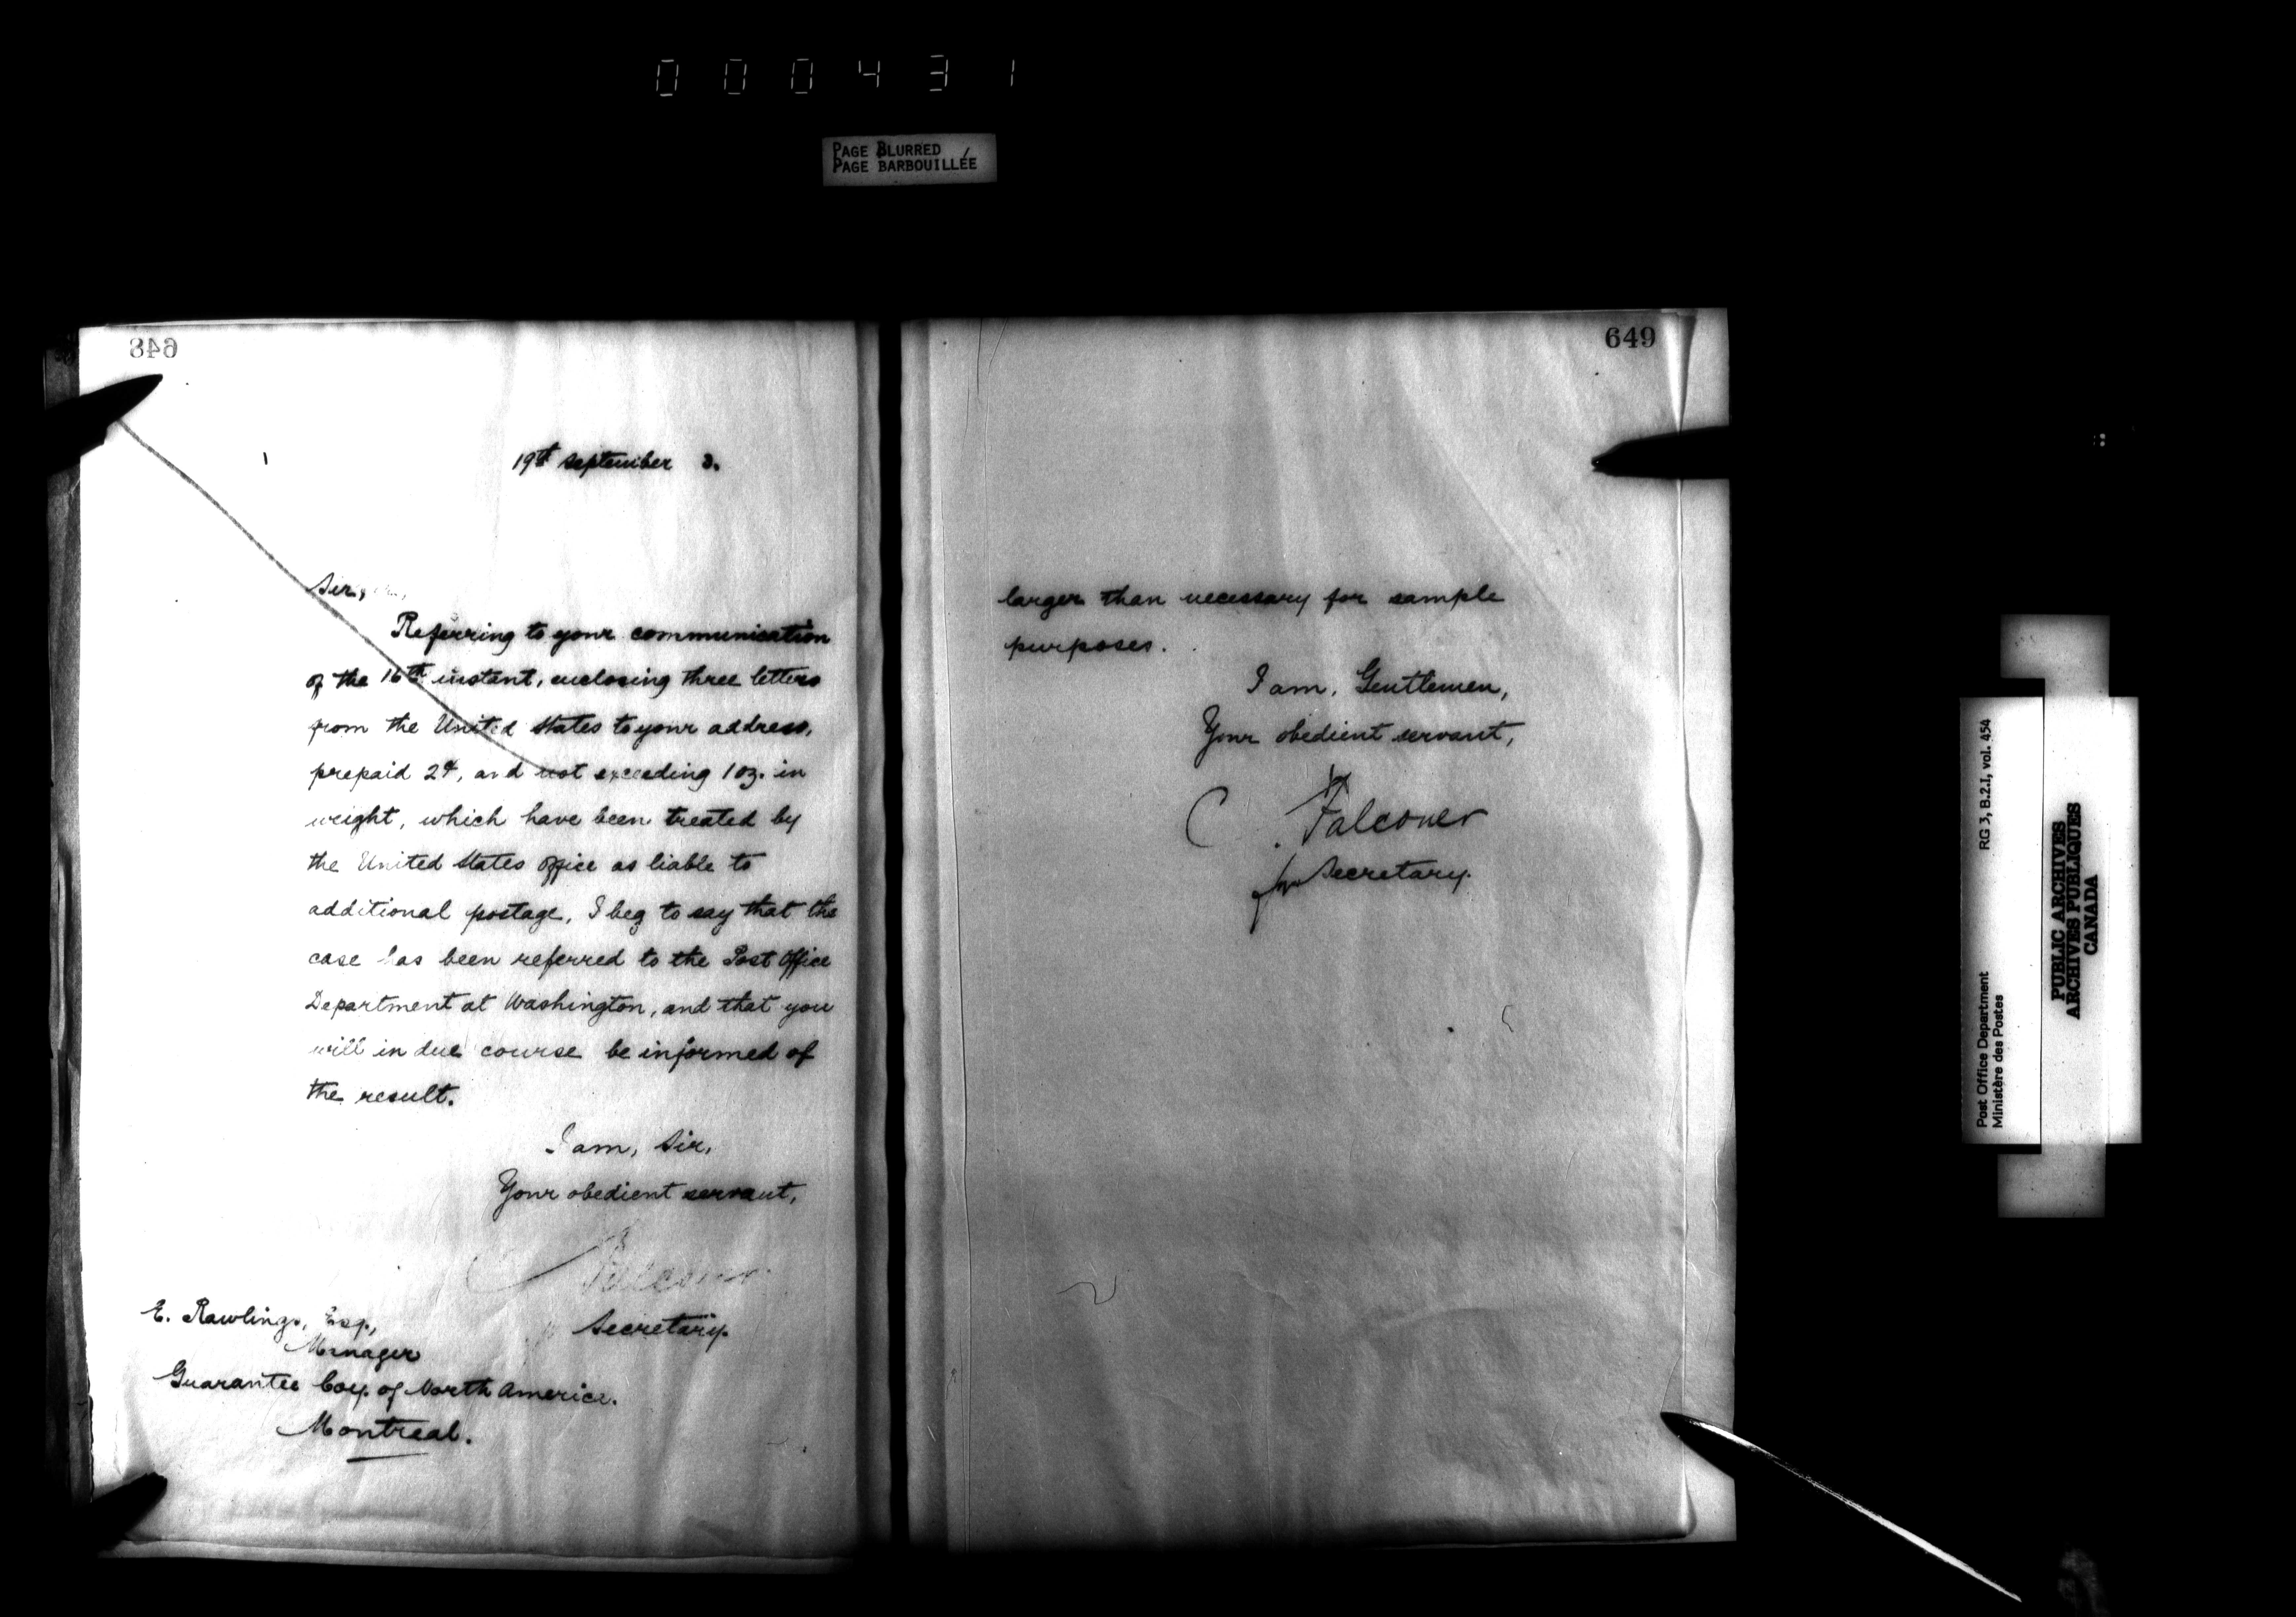 000431
PAGE BLURRED
PAGE BARBOUILLÉE
648
19th September 3.
Sir,
Referring to your communication
of the 16th instant, enclosing three letters
from the United States to your address,
prepaid 2¢, and not exceeding 1 oz. in
weight, which have been treated by
the United States Office as liable to
additional postage, I beg to say that the
case has been referred to the Post Office
Department at Washington, and that you
will in due course be informed of
the result.
I am, Sir,
Your obedient servant,
Falconer
Secretary.
E. Rawlings, Esq.,
Manager
Guarantee Coy. of North America.
Montreal.
649
larger than necessary for sample
purposes.
I am, Gentlemen,
Your obedient servant,
C Falconer
for Secretary.
Post Office Department
Ministère des Postes
RG 3, B.2.I, vol. 454
PUBLIC ARCHIVES
ARCHIVES PUBLIQUES
CANADA